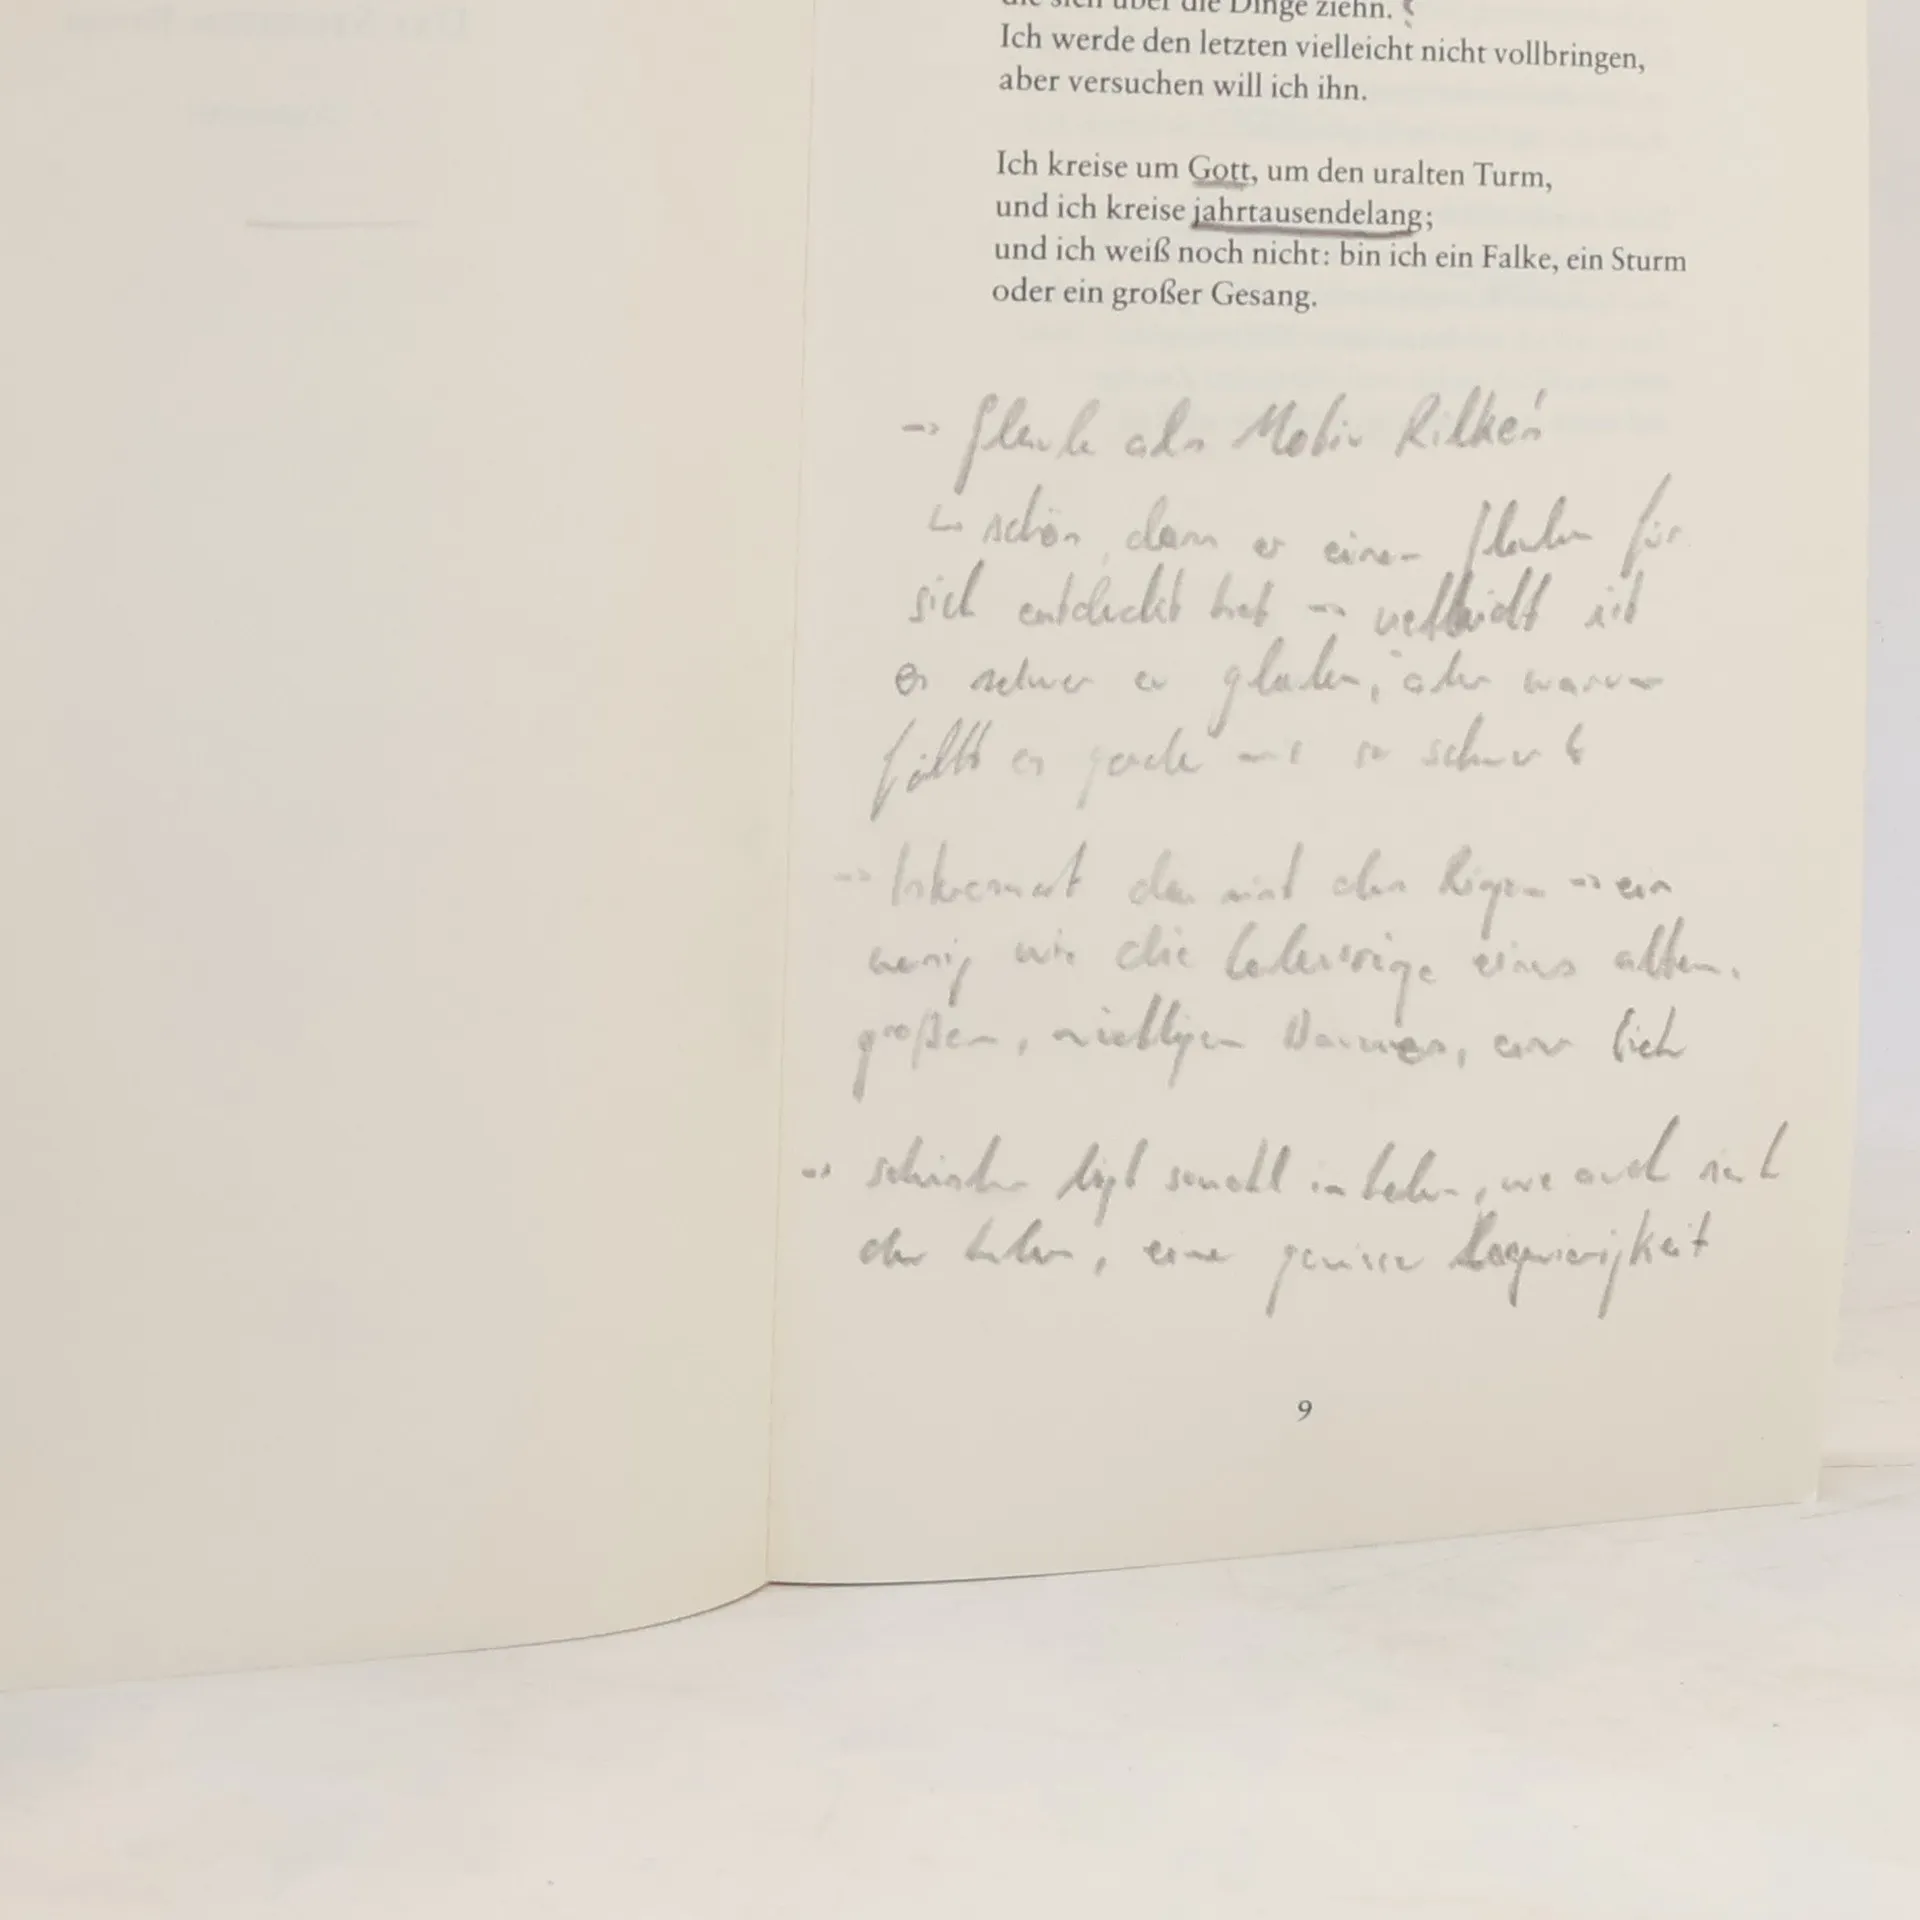 die sich über die Dinge ziehn.
Ich werde den letzten vielleicht nicht vollbringen,
aber versuchen will ich ihn.
Ich kreise um Gott, um den uralten Turm,
und ich kreise jahrtausendelang;
und ich weiß noch nicht: bin ich ein Falke, ein Sturm
oder ein großer Gesang.
→ Glaube als Motiv Rilkes!
↳ schön, dass er einen Glauben für
sich entdeckt hat → vielleicht ist
es schwer zu glauben, aber warum
fällt es gerade mir so schwer?
→ Interessant das mit den Ringen → ein
wenig wie die Lebensringe eines alten,
großen, mächtigen Baumes, ein
→ scheinbar liegt sowohl im Leben, wie auch
eine gewisse Langwierigkeit
9